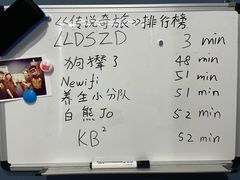 《传说奇旅》排行榜
LLDSZD 3 min
48 min
Newifi 51 min
养生小分队 51 min
白熊Jo 52 min
KB² 52 min